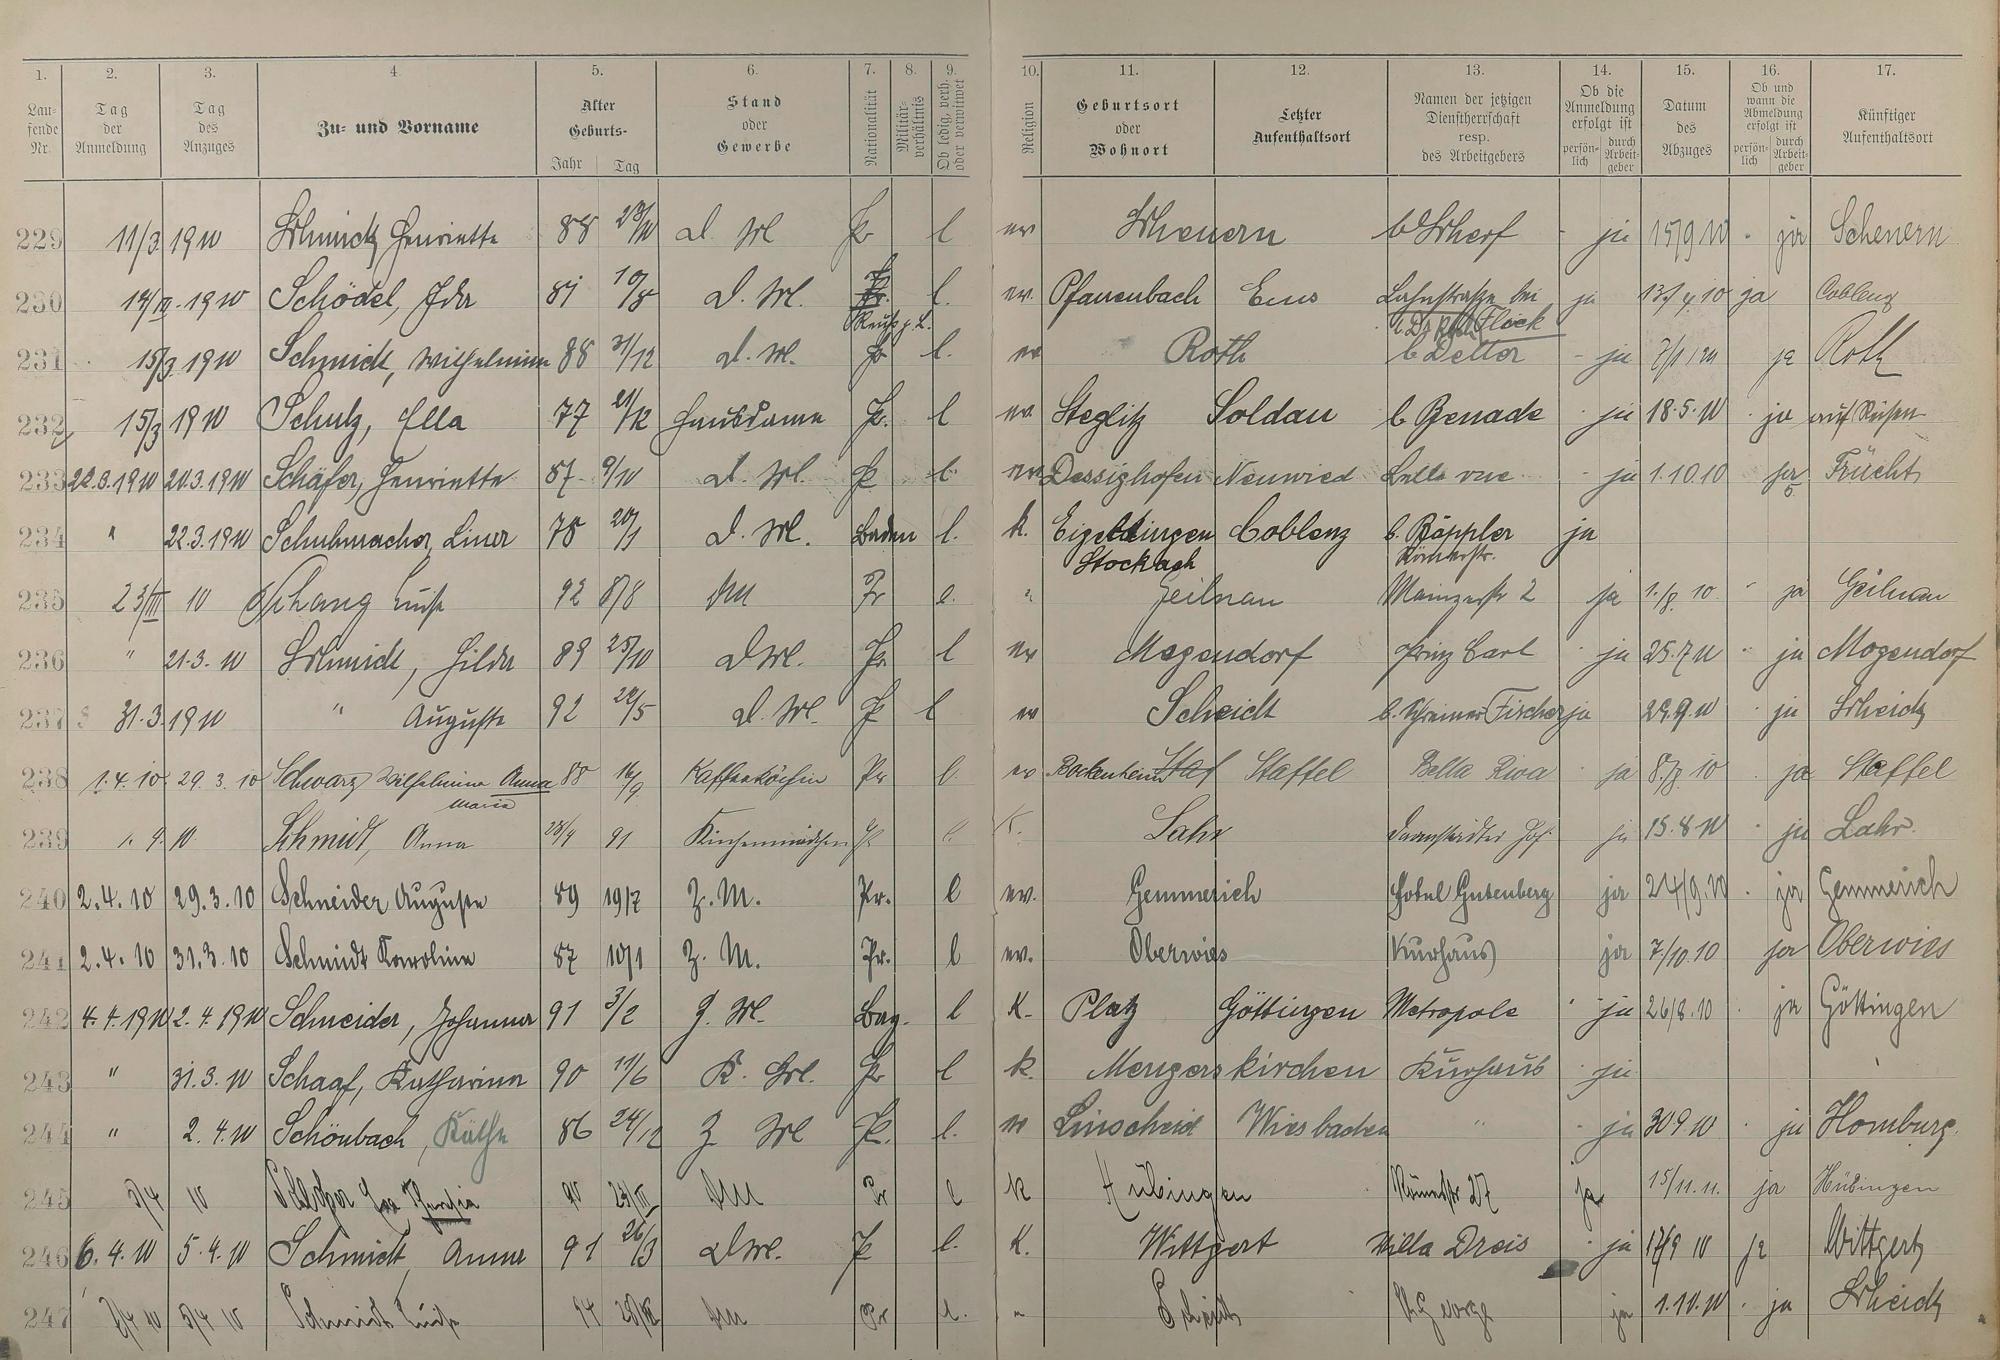 1. 2. 3. 4. 5. 6. 7. 8. 9. 10. 11. 12. 13. 14. 15. 16. 17.
Lau-fende Nr. Tag der Anmeldung Tag des Anzuges Zu- und Vorname Alter Geburts- Jahr Tag Stand oder Gewerbe Nationalität Militär-verhältnis Ob ledig, verh. oder verwitwet Religion Geburtsort oder Wohnort Letzter Aufenthaltsort Namen der jetzigen Dienstherrschaft resp. des Arbeitgebers Ob die Anmeldung erfolgt ist persön-lich durch Arbeit-geber Datum des Abzuges Ob und wann die Abmeldung erfolgt ist persön-lich durch Arbeit-geber Künftiger Aufenthaltsort
229 11/3 1910 Henriette 88 d. Ml Pr l ev Scheuern b Scherf - ja 15/9 10 - ja Scheuern
230 1910 Schödel, Ida 81 10/8 d. Ml. l. ev. Pfannenbach Ems Lahnstraße bei ja 10 ja Coblenz
Reuß j. L. Dr Flöck
231 15/3 1910 Schmidt, Wilhelmine 88 31/12 d. Ml. Pr l. ev Roth b Detter - ja ja Roth
232 15/3 1910 Schulz, Ella 77 21/12 Hausdame Pr. l ev Steglitz Soldau b Benade - ja 18.5.10 - ja auf Reisen
233 22.3.1910 20.3.1910 Schäfer, Henriette 87 9/10 d. Ml. Pr l. ev Dessighofen Neuwied Bellevue - ja 1.10.10 ja Frücht
234 " 22.3.1910 Schuhmacher, Lina 78 20/1 d. Ml. Baden l. k. Eigeltingen Coblenz b. Röppler ja
Stockach Römerstr.
235 23/III 10 Schang Luise 92 8/8 DM Pr l. " Geilnau Mainzerstr 2 ja 1./8. 10 " ja Geilnau
236 " 21.3.10 Schmidt, Hilda 89 25/10 d Ml. Pr l ev Mogendorf Prinz Carl - ja 25.7 10 " ja Mogendorf
237 31.3 1910 " Auguste 92 22/5 d. Ml. Pr l ev Scheidt b. Schreiner Fischer ja 29.9.10 - ja Scheidt
238 1.4.10 29.3.10 Schwarz Wilhelmine Anna 88 16/9 Kaffeeköchin Pr l. ev Bockenheim Staffel Bella Riva - ja 8./8. 10 - ja Staffel
Maria
239 1. 4. 10 Schmidt, Anna 28/4 91 Küchenmädchen Pr l K. Lahr Darmstädter Hof. ja 15.8 10 - ja Lahr.
240 2.4.10 29.3.10 Schneider Auguste 89 19/7 Z.M. Pr. l ev. Gemmerich Hotel Gutenberg ja 24/9.10 - ja Gemmerich
241 2.4.10 31.3.10 Schmidt Karoline 87 10/1 Z.M. Pr. l ev. Oberwies Kurhaus ja 7./10.10 ja Oberwies
242 4.4.1910 2.4.1910 Schneider, Johanna 91 3/2 Z. Ml. Bay. l K. Platz Göttingen Metropole - ja 26/8.10 - ja Göttingen
243 " 31.3.10 Schaaf, Katharina 90 11/6 K. Ml. Pr l k. Mengerskirchen Kurhaus - ja
244 " 2.4.10 Schönbach, Käthe 86 24/12 Z Ml Pr. l. ev Linscheid Wiesbaden " - ja 30 9 10 - ja Homburg.
245 5/4 10 Eva 90 DM Pr l k Hübingen Römerstr 27 ja 15/11.11. ja Hübingen
246 6.4.10 5.4.10 Schmidt, Anna 91 26/3 d Ml. Pr l. K. Wittgert Villa Dreis - ja 17/9 10 ja Wittgert
247 5/4 10 Schmidt Luise DM Pr l. " Scheidt George ja 1.10.10 - ja Scheidt